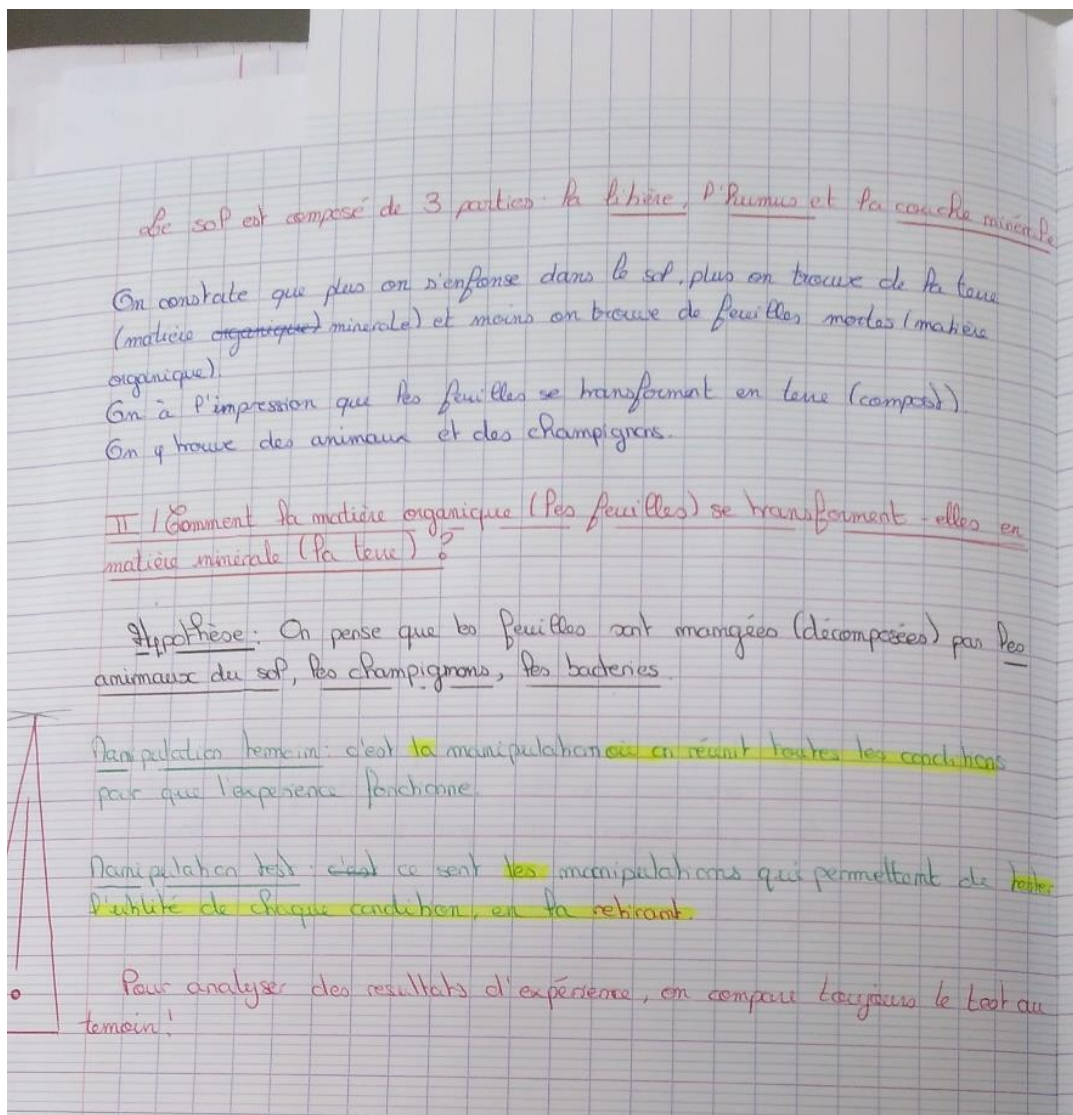 Le sol est composé de 3 parties. la litière, l'humus et la couche minérale
On constate que plus on s'enfonse dans le sol, plus on trouve de la terre
(matière organique) minerale) et moins on trouve de feuilles mortes (matière
organique).
On à l'impression que les feuilles se transforment en terre (compost)
On y trouve des animaux et des champignons.
II / Comment la matière organique (les feuilles) se transforment-elles en
matière minérale (la terre) ?
Hypothèse : On pense que les feuilles sont mamgées (décomposées) par les
animaux du sol, les champignons, les bacteries.
Manipulation temoin : c'est la manipulation où on réunit toutes les conditions
pour que l'experience fonctionne.
Manipulation test : c'est ce sont les manipulations qui permettent de tester
l'utilité de chaque condition, en la retirant.
Pour analyser des resultats d'expérience, on compare toujours le test au
temoin !